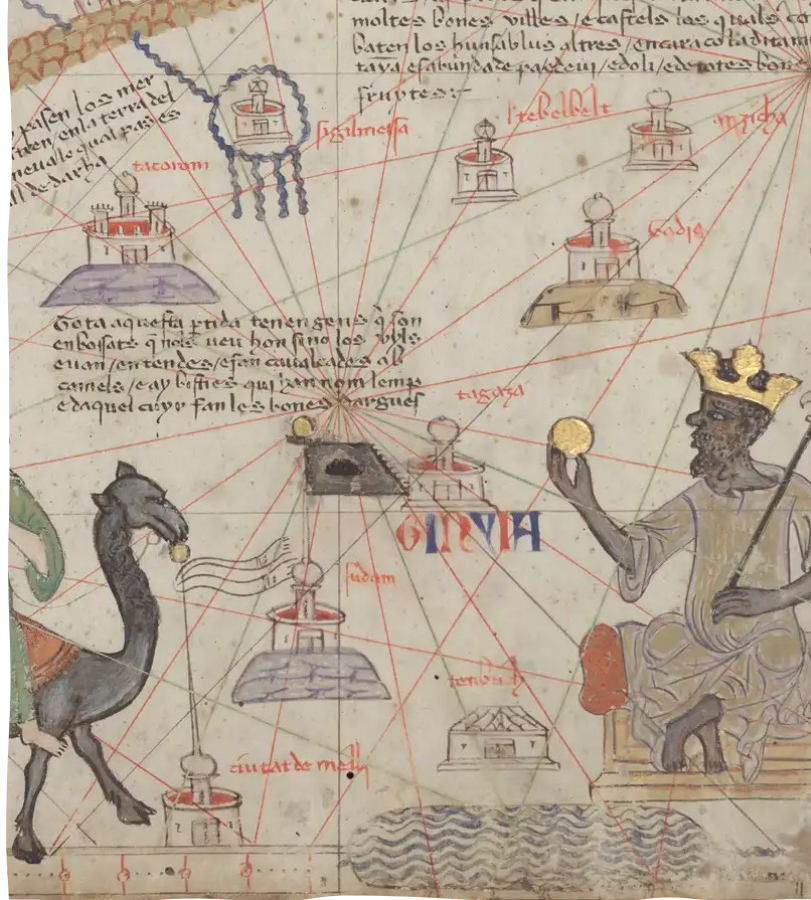 moltes bones villes / e castels los quals co
baten los huns ab lus altres / encara co la ditam
tara es abundade pa e de vi / e doli / e de totes bones
fruytes :-
pasen los mer
tren / en la terra del
neu a le qual pas es
all de darha
tacorom
sigilmessa
l'tebelbelt
Tota aquesta ptida tenen gens q son
enbossats q nols veu hom sino los vyls
e van / en tendes / e fan cavalcades ab
camels / e ay bisties qui han nom lemp
e daquel cuyr fan les bones dargues
tagaza
GINYIA
sudam
tenbuch
ciutat de melli